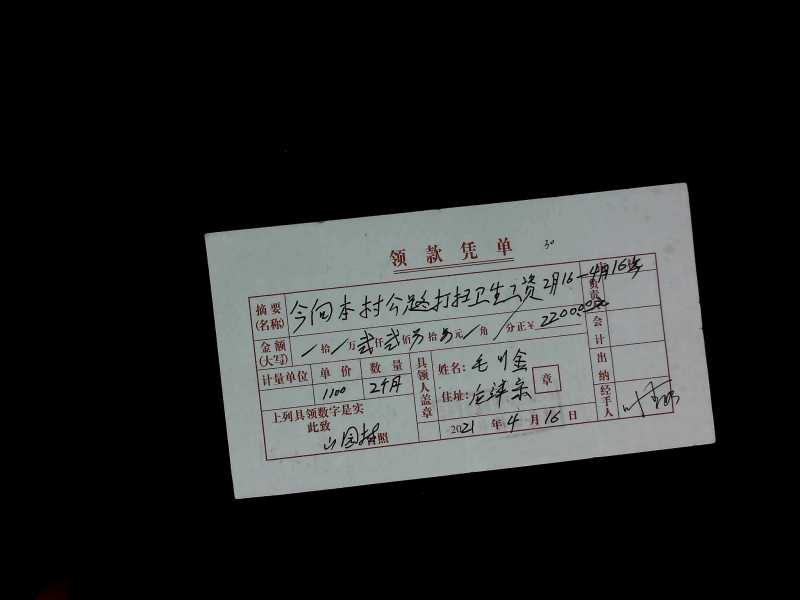 领款凭单
30
摘要(名称) 今向本村公路打扫卫生工资2月16—4月16号
金额(大写) 拾 万贰仟贰佰 拾 元 角 分正¥ 2200.00元
负责
计量单位 单价 数量
1100 2个月
具领人盖章
姓名: 毛 金
住址: 章
会计
出纳
经手人
上列具领数字是实
此致
村照
2021年4月16日